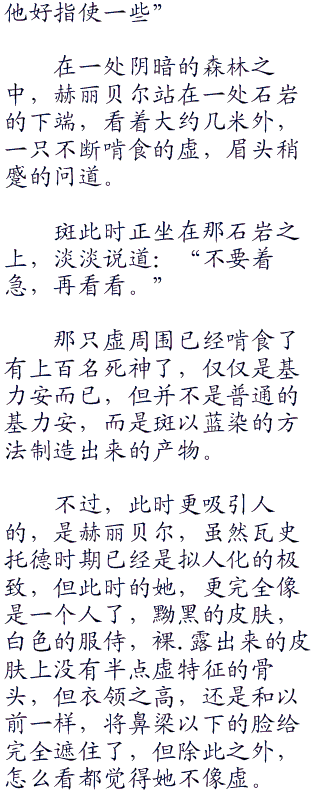 他好指使一些”
在一处阴暗的森林之
中，赫丽贝尔站在一处石岩
的下端，看着大约几米外，
一只不断啃食的虚，眉头稍
蹙的问道。
斑此时正坐在那石岩之
上，淡淡说道：“不要着
急，再看看。”
那只虚周围已经啃食了
有上百名死神了，仅仅是基
力安而已，但并不是普通的
基力安，而是斑以蓝染的方
法制造出来的产物。
不过，此时更吸引人
的，是赫丽贝尔，虽然瓦史
托德时期已经是拟人化的极
致，但此时的她，更完全像
是一个人了，黝黑的皮肤，
白色的服侍，裸.露出来的皮
肤上没有半点虚特征的骨
头，但衣领之高，还是和以
前一样，将鼻梁以下的脸给
完全遮住了，但除此之外，
怎么看都觉得她不像虚。